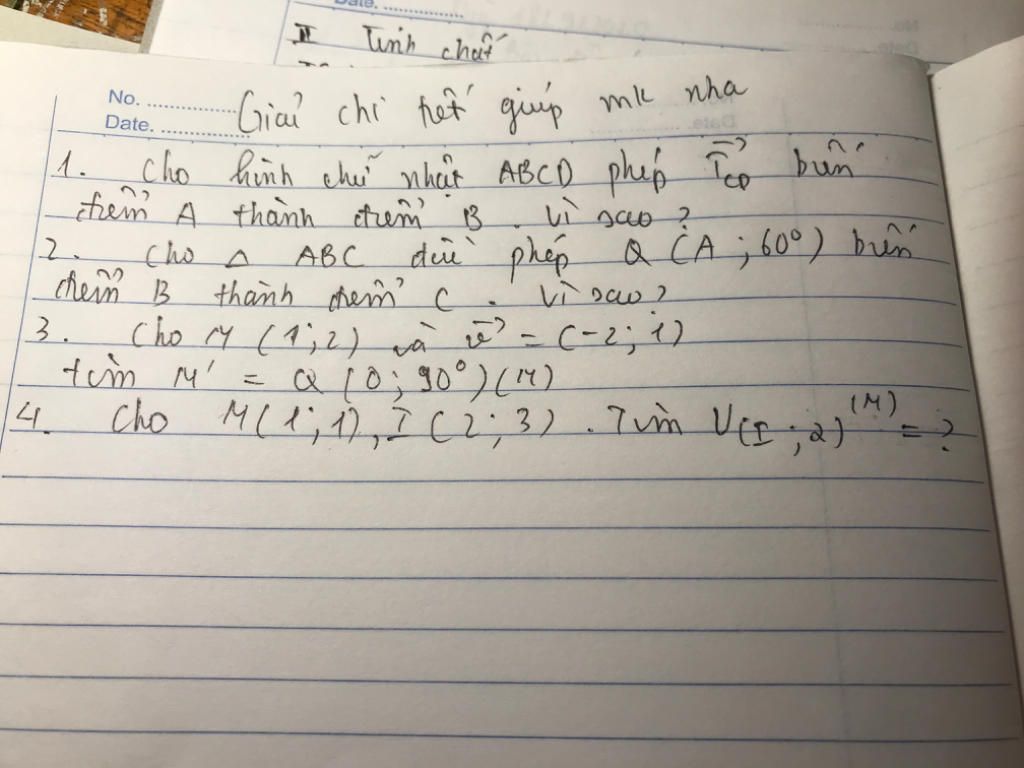 Date. ..............
II Tính chất
No. ..............
Date. ..............
Giải chi tiết giúp mk nha
1. Cho hình chữ nhật ABCD phép T⃗CD biến
điểm A thành điểm B. Vì sao?
2. Cho △ ABC đều phép Q (A ; 60°) biến
điểm B thành điểm C. Vì sao?
3. Cho M (1;2) và v⃗ = (-2; 1)
tìm M' = Q (0; 90°)(M)
4. Cho M(1;1), I (2;3). Tìm V(I ; 2)(M) = ?